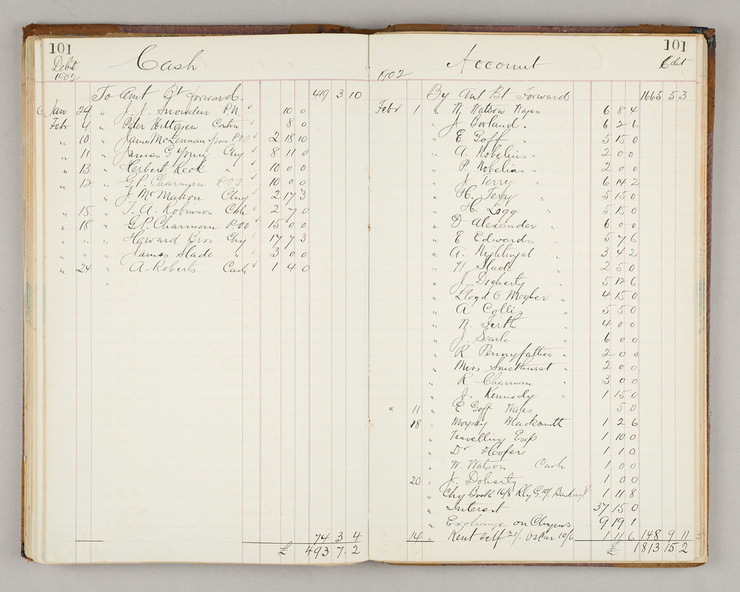 101
Cash
Debit
1902
To Amt Bt forward 419 3 10
Jan 29 " J. J. Snowden P.N. 10 0
Feb 4 " Peter Cash 8 0
" 10 " James McLennan P.O.O. 2 18 10
" 11 " James G Young Chq 8 11 0
" 13 " Herbert Keck " 10 0 0
" 17 " G.P. Charman P.O.O. 10 0 0
J McMahon Chq 2 17 3
" 15 " T. A. Robinson Chq 2 7 0
" 18 " G.P. Charman P.O.O. 15 0 0
" " Howard Bros Chq 17 7 3
" " James Slade " 3 0 0
" 24 " A. Roberts Cash 1 4 0
74 3 4
£ 493 7 2
101
Account
Credit
1902
By Amt Bt Forward 1665 5 3
Feb 1 " W Watson Wages 6 8 4
" J Borland " 6 2 6
" E Goft " 5 15 0
" A. Nobelius " 2 0 0
" P. Nobelius " 2 0 0
" J Terry " 6 14 2
" H. Terry " 5 15 0
" H. Legg " 5 15 0
" D Alexander " 6 0 0
" E Edwards " 5 7 6
" A. 3 4 2
" H Slade " 2 5 0
" J Dogherty " 5 12 6
" Lloyd C " 4 15 0
" A Collis " 5 5 0
" N. Firth " 4 0 0
" J Searle " 6 0 0
" R Pennyfather " 2 0 0
" Miss Smethurst " 2 0 0
" R Charman " 3 0 0
" J. Kennedy " 1 15 0
" 11 " E Goft Wages 5 0
18 " 1 2 6
" Travelling Exp 1 10 0
" Dr Hooper 1 1 0
" W. Watson Cash 1 0 0
20 " J. Doherty 1 0 0
" Chq Book 1 11 8
" Interest 57 15 0
" Exchange on Cheques 9 19 1
14 " Rent self 21/- Oscar 10/6 1 11 6 148 9 11
£ 1813 15 2